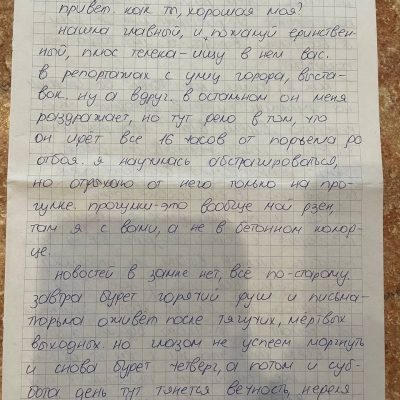 привет. как ты, хорошая моя?
нашла главный, и, пожалуй единствен-
ный, плюс телека-ищу в нем вас.
в репортажах с улиц города, выста-
вок. ну а вдруг. в остальном он меня
раздражает, но тут дело в том, что
он идёт все 16 часов от подъема до
отбоя. я научилась абстрагироваться,
но отдыхаю от него только на про-
гулке. прогулки-это вообще мой дзен,
там я с вами, а не в бетонном колод-
це.
новостей в замке нет, всё по-старому.
завтра будет горячий душ и письма-
тюрьма оживёт после тягучих, мёртвых
выходных. но глазом не успеем моргнуть
и снова будет четверг, а потом и суб-
бота. день тут тянется вечность, неделя